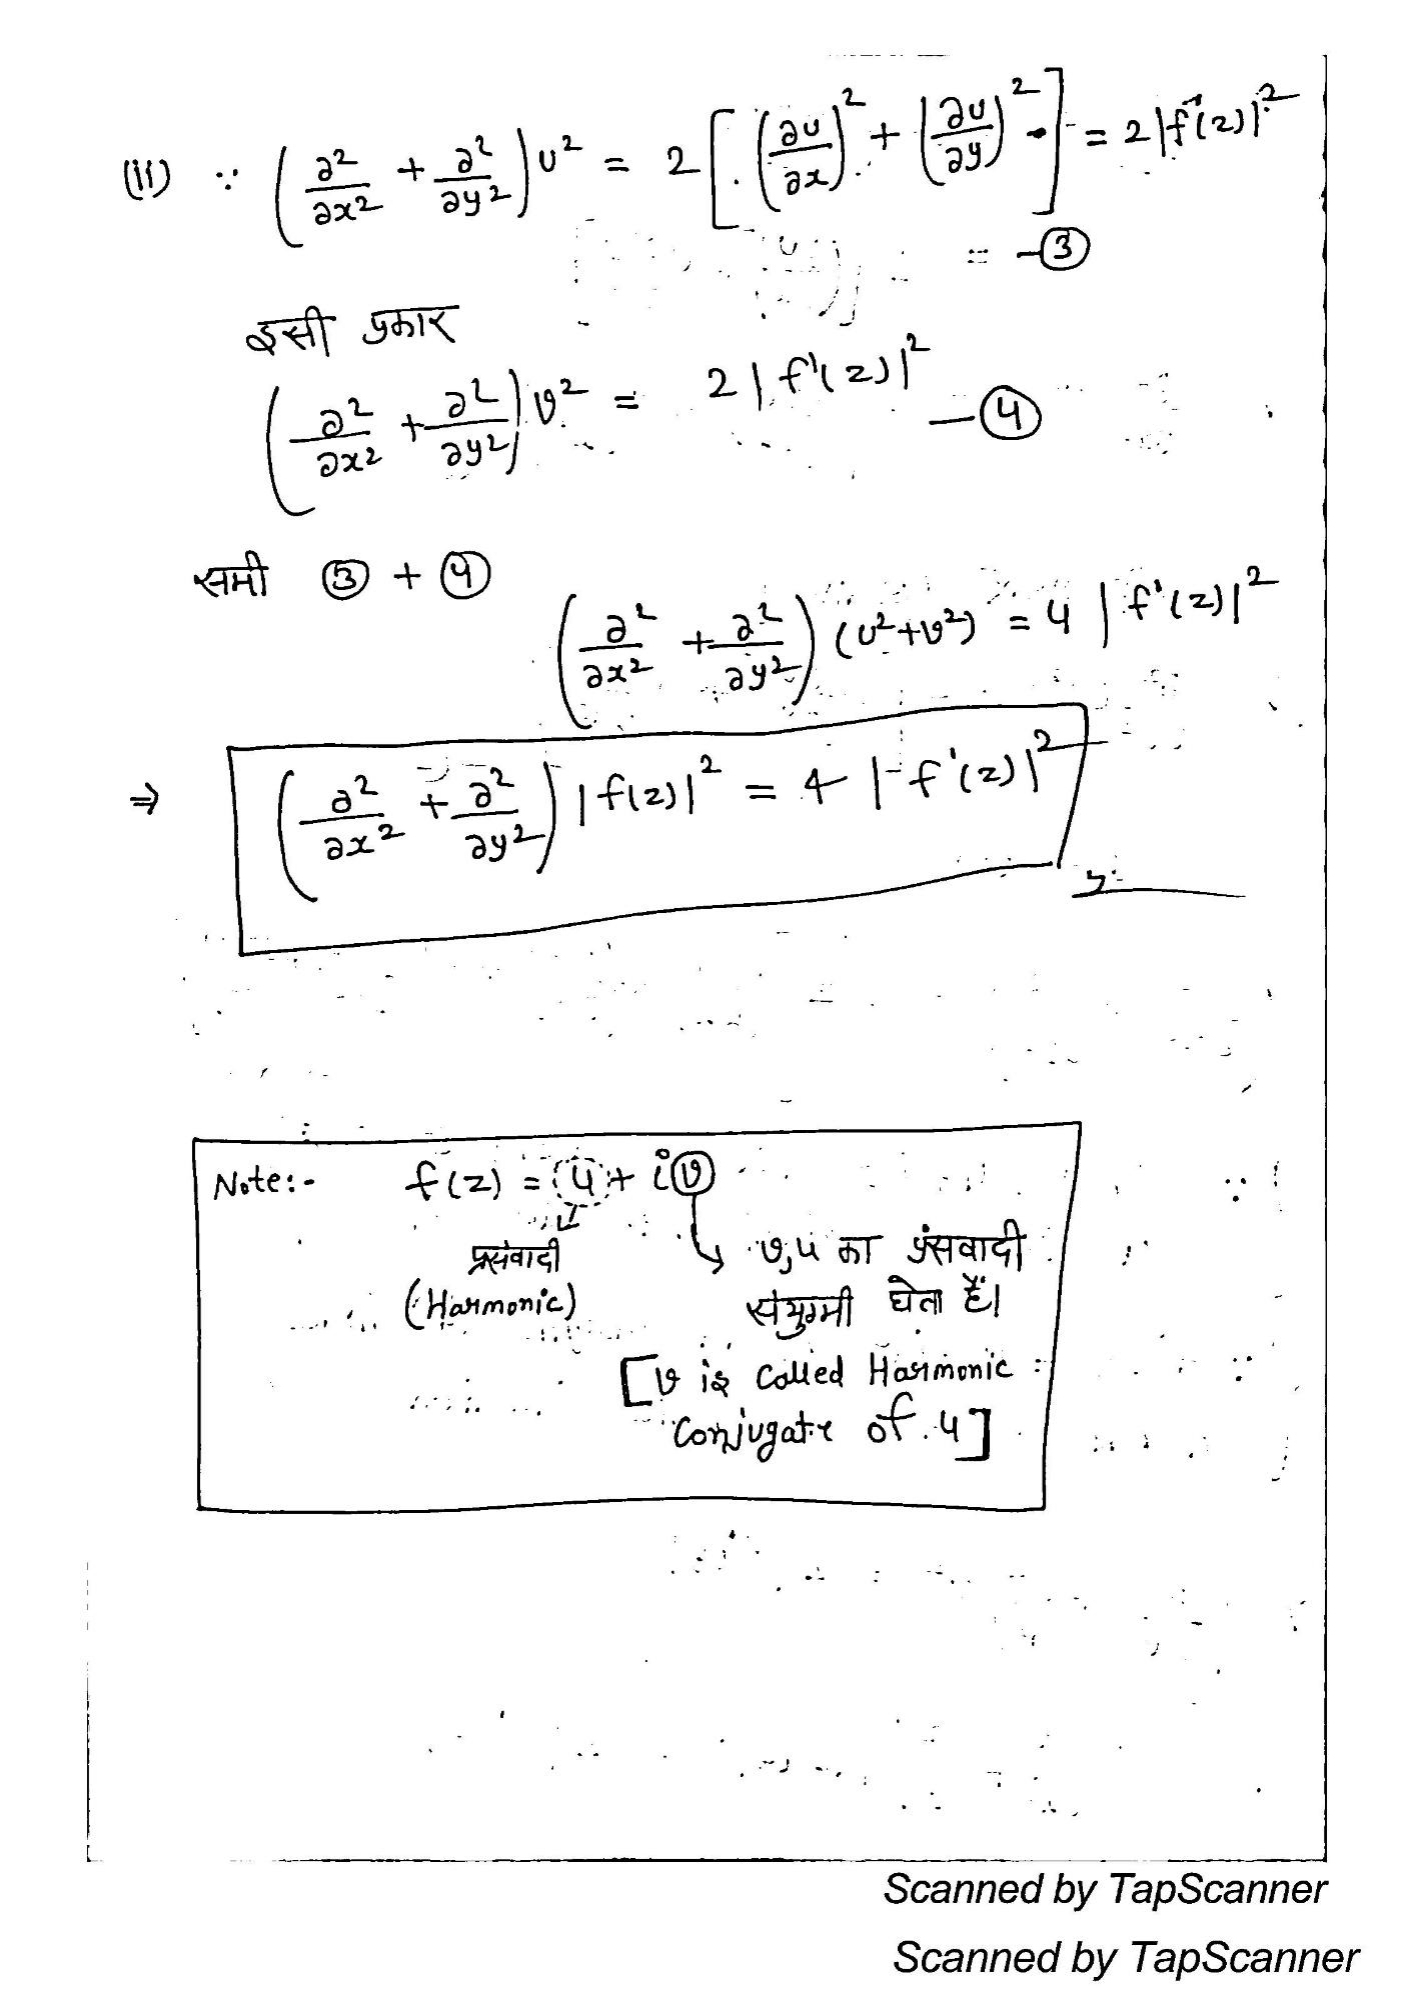 (ii) ∵ (∂²/∂x² + ∂²/∂y²) u² = 2[(∂u/∂x)² + (∂u/∂y)²] = 2|f'(z)|²
= —③
इसी प्रकार
(∂²/∂x² + ∂²/∂y²) v² = 2|f'(z)|²
—④
समी ③ + ④
(∂²/∂x² + ∂²/∂y²) (u²+v²) = 4 |f'(z)|²
⇒ (∂²/∂x² + ∂²/∂y²) |f(z)|² = 4 |f'(z)|²
Note:- f(z) = u + iv
प्रसंवादी
(Harmonic)
v, u का प्रंसवादी
संयुग्मी घेता हैं।
[v is called Harmonic
Conjugate of u]
Scanned by TapScanner
Scanned by TapScanner